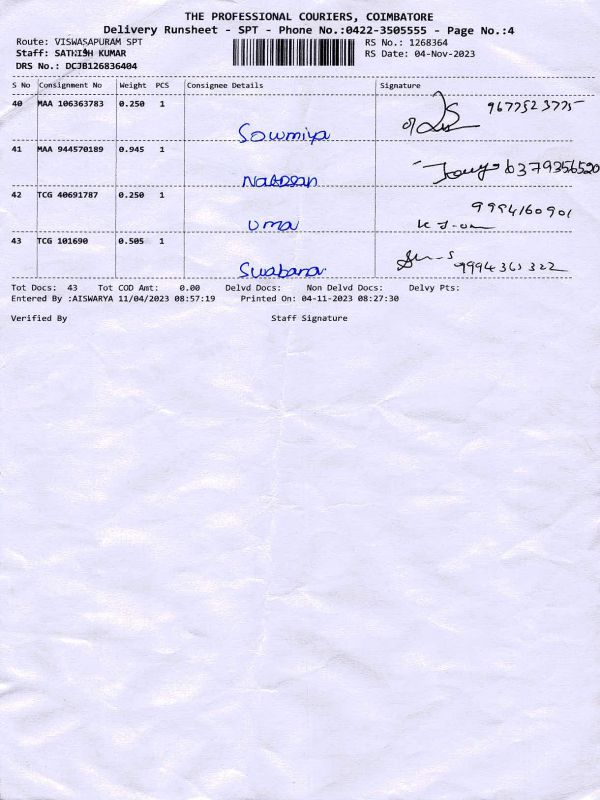 THE PROFESSIONAL COURIERS, COIMBATORE
Delivery Runsheet - SPT - Phone No.:0422-3505555 - Page No.:4
Route: VISWASAPURAM SPT RS No.: 1268364
Staff: SATHISH KUMAR RS Date: 04-Nov-2023
DRS No.: DCJB126836404
S No Consignment No Weight PCS Consignee Details Signature
40 MAA 106363783 0.250 1 9677523775
Sowmiya
41 MAA 944570189 0.945 1 6379356520
Natesan
42 TCG 40691787 0.250 1 9994160901
Uma
43 TCG 101690 0.505 1 9994365322
Swabana
Tot Docs: 43 Tot COD Amt: 0.00 Delvd Docs: Non Delvd Docs: Delvy Pts:
Entered By :AISWARYA 11/04/2023 08:57:19 Printed On: 04-11-2023 08:27:30
Verified By Staff Signature